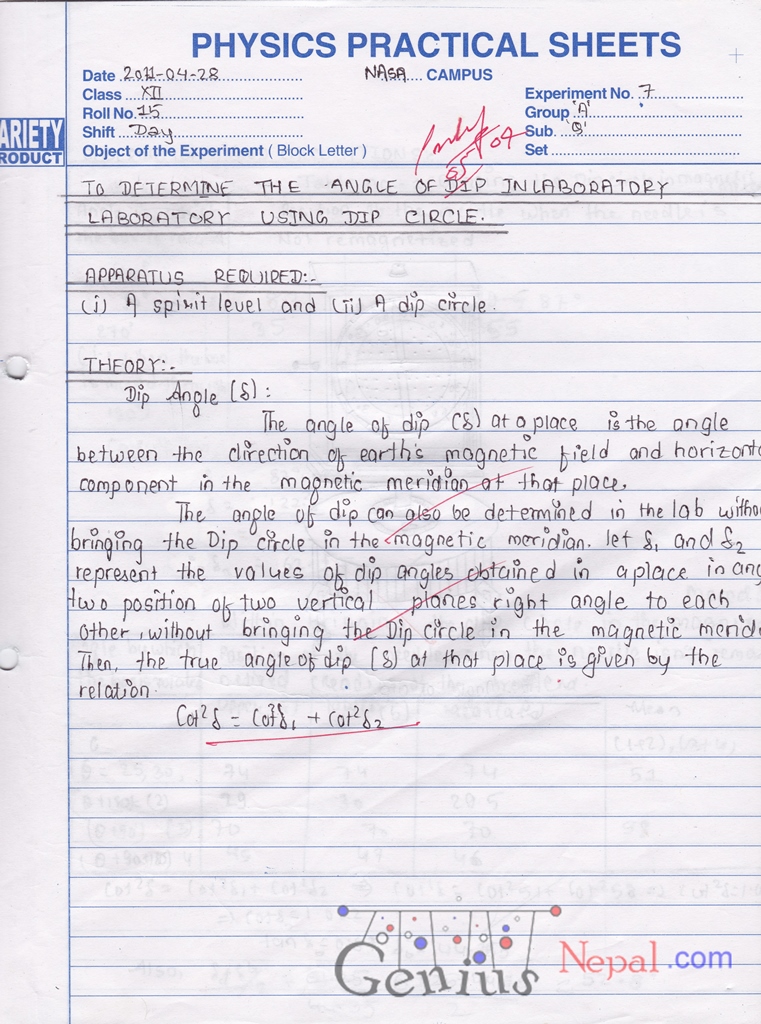 PHYSICS PRACTICAL SHEETS
Date 2011-04-28 NASA CAMPUS
Class XII Experiment No. 7
Roll No. 15 Group 'A'
Shift Day Sub. 'B'
Object of the Experiment ( Block Letter ) Set
ARIETY
RODUCT
TO DETERMINE THE ANGLE OF DIP IN LABORATORY
LABORATORY USING DIP CIRCLE.
APPARATUS REQUIRED:-
(i) A spirit level and (ii) A dip circle.
THEORY:-
Dip Angle (δ) :
The angle of dip (δ) at a place is the angle
between the direction of earth's magnetic field and horizonta
component in the magnetic meridian at that place.
The angle of dip can also be determined in the lab withou
bringing the Dip circle in the magnetic meridian. let δ₁ and δ₂
represent the values of dip angles obtained in a place in any
two position of two vertical planes right angle to each
other, without bringing the Dip circle in the magnetic merid
Then, the true angle of dip (δ) at that place is given by the
relation.
Cot²δ = Cot²δ₁ + cot²δ₂
Genius Nepal.com